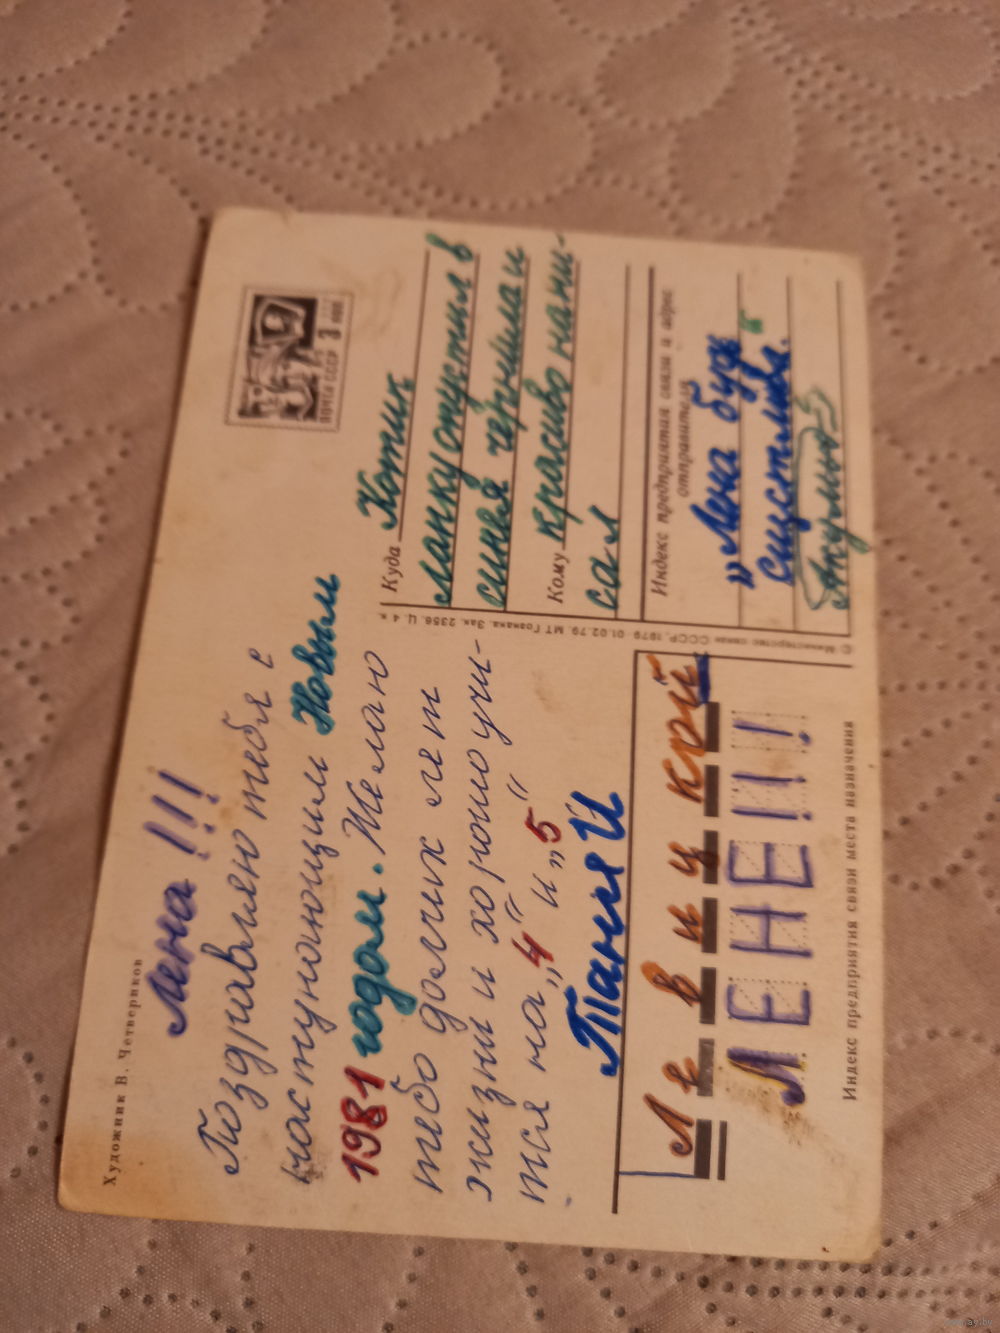 Художник В. Четвериков
Лена!!!
Поздравляю тебя с
наступающим Новым
1981 годом. Желаю
тебо долгих лет
жизни и хорошо учи-
тся на „4" и „5"
Таня И
Левицкой
ЛЕНЕ!!!
Индекс предприятия связи места назначения
© Министерство связи СССР, 1979 01.02.79. МТ Гознака. Зак. 2356. Ц. 4 к
ПОЧТА СССР 3 коп
Куда Котик
лапку опустил в
синия чернила и
Кому красиво напи-
сал
Индекс предприятия связи и адрес
отправителя
„Лена будь
счастлива."